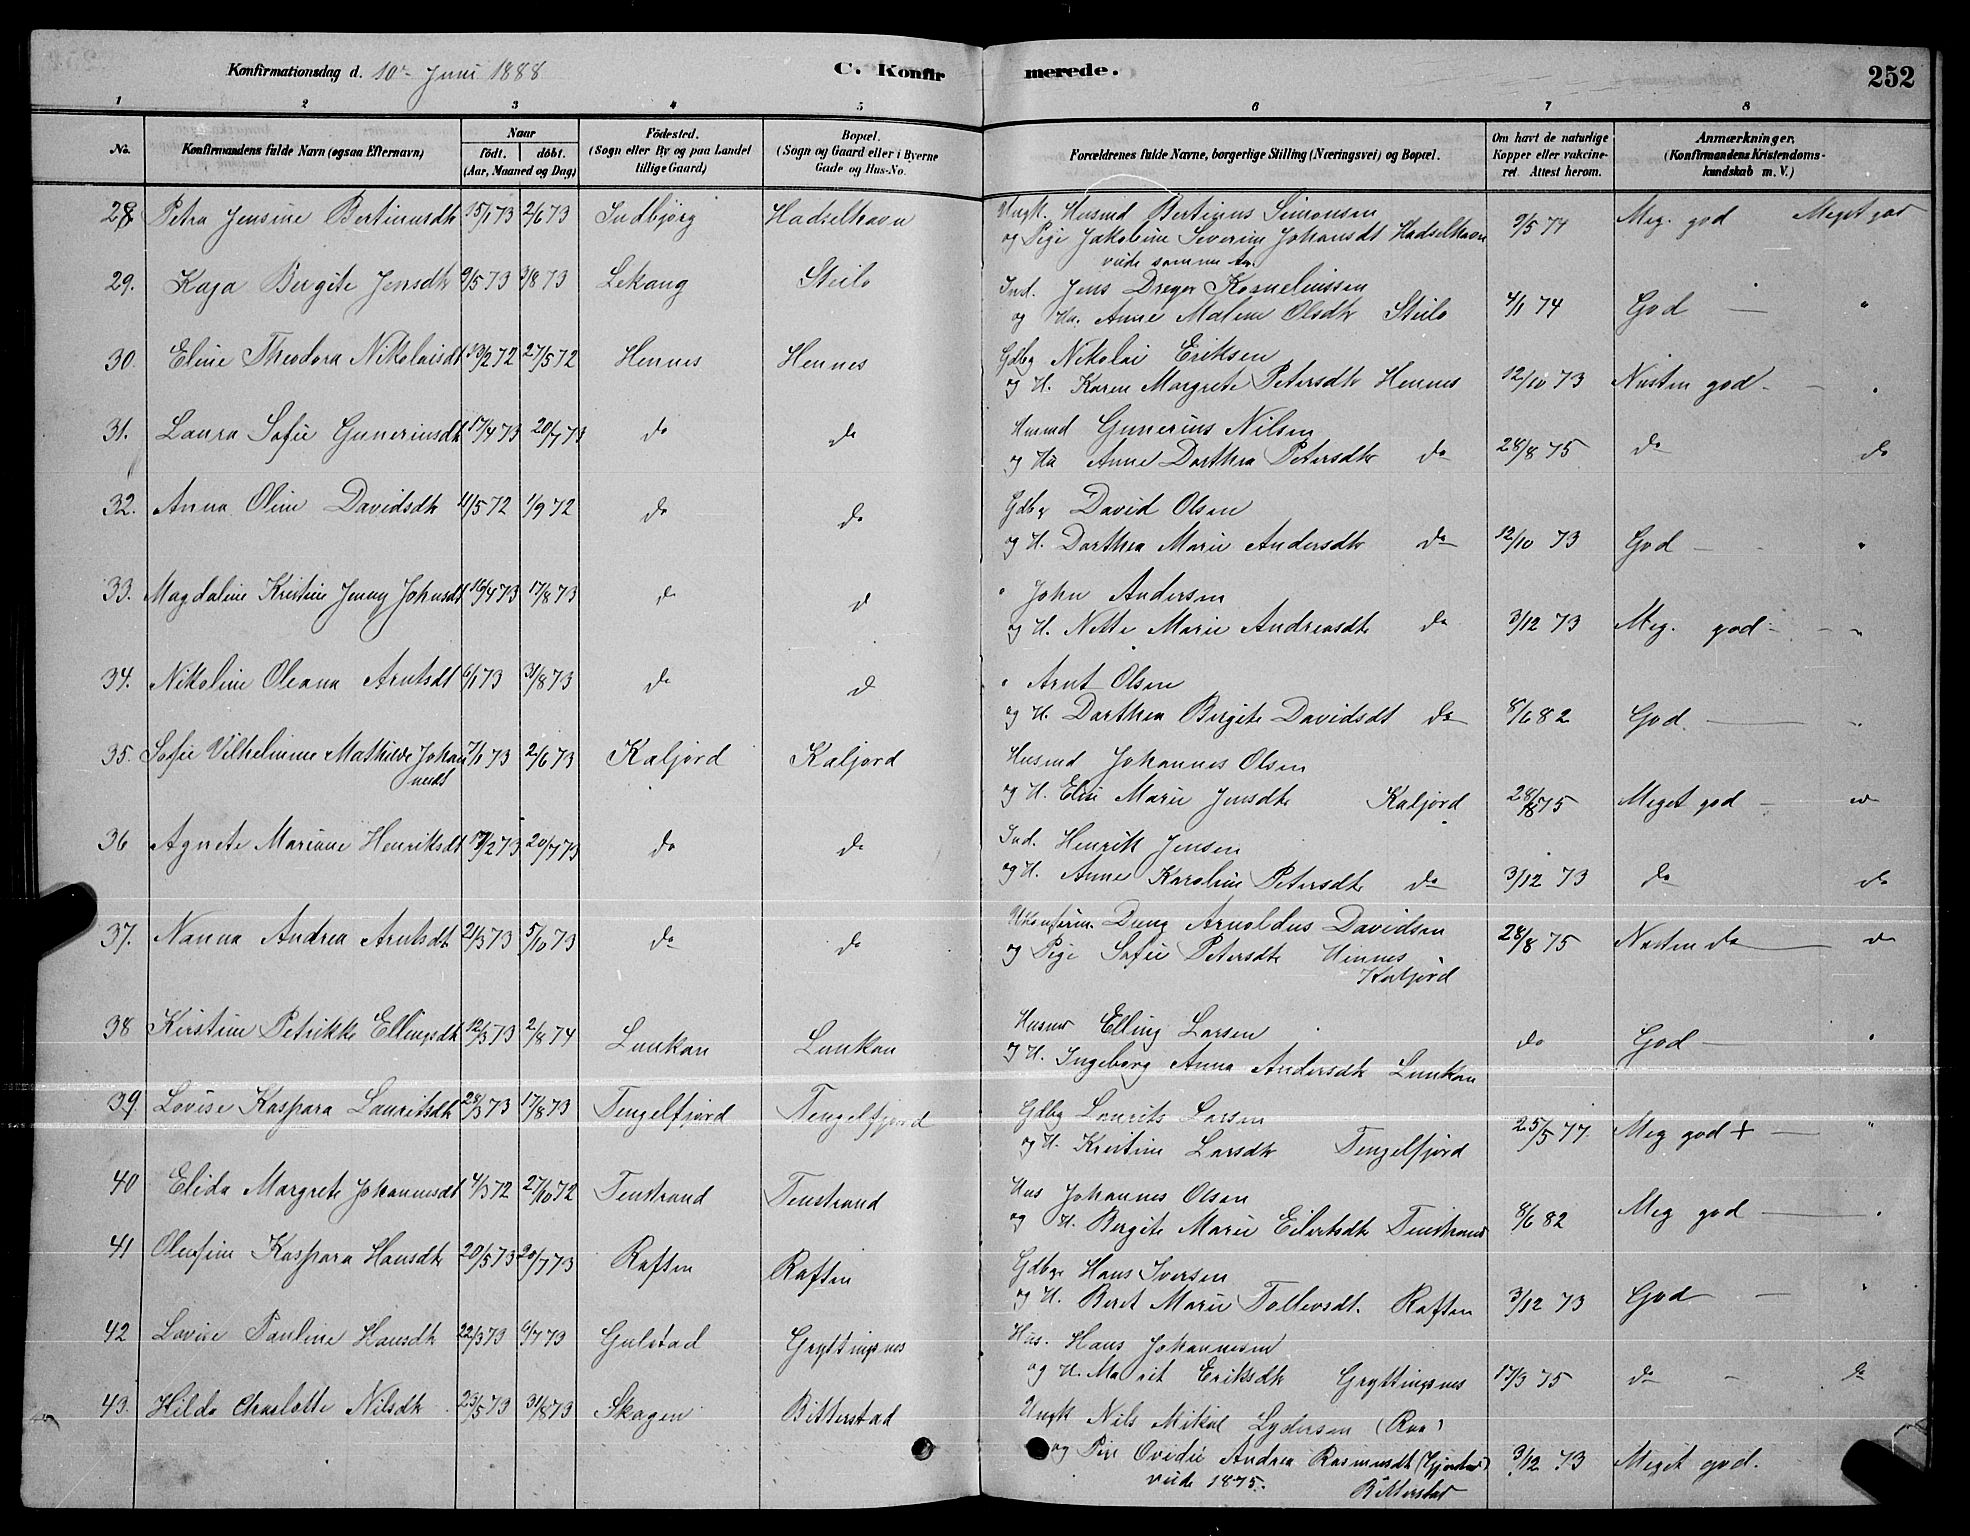 Konfirmationsdag d. 10de Juni 1888 C. Konfirmerede. 252
1 2 3 4 5 6 7 8
No. Konfirmandens fulde Navn (ogsaa Efternavn) Naar födt. döbt. (Aar, Maaned og Dag) Födested. (Sogn eller By og paa Landet tillige Gaard) Bopæl. (Sogn og Gaard eller i Byerne Gade og Hus-No. Forældrenes fulde Navne, borgerlige Stilling (Næringsvei) og Bopæl. Om havt de naturlige Kopper eller vakcineret. Attest herom. Anmærkninger. (Konfirmandens Kristendomskundskab m. V.)
28 Petra Jensine Bertinusdt 15/1 73 2/6 73 Indbjörg Hadselhavn Ungk. Husmd Bertinus Simonsen 9/5 74 Meg. god Meget god
og Pige Jakobine Severine Johansdt Hadselhavn
viede samme Ar.
29. Kaja Bergite Jensdt 9/5 73 3/8 73 Lekang Steilo Ind. Jens Dreyer Kornelinssen
og Hu. Anne Malene Olsdt Steilo 4/1 74 God — "
30. Eline Theodora Nikolaisdt 13/2 72 27/5 72 Hennes Hennes Gdbg Nikolai Eriksen
og H. Karen Margrete Petersdt Hennes 12/10 73 Næsten god - — "
31. Laura Sofie Gunerinsdt 17/4 73 20/7 73 do do Husmd Gunerius Nilsen
og Hu Anne Dorthea Petersdt do 28/8 75 do do
32. Anna Oline Davidsdt 11/5 72 1/9 72 do do Gdbr David Olsen
og H. Dorthea Marie Andersdt do 12/10 73 God — "
33. Magdaline Kristine Jenny Johnsdt 16/4 73 17/8 73 do do " John Andersen
og H. Nette Marie Andreasdt do 3/12 73 Meg. god - "
34. Nikoline Oleana Arntsdt 6/1 73 31/8 73 do do " Arnt Olsen
og H. Dorthea Bergite Davidsdt do 8/6 82 God. — "
35. Sofie Vilhelmine Mathilde Johannesdt 7/1 73 2/6 73 Kaljord Kaljord Husmd Johannes Olsen
og H. Elise Marie Jensdt Kaljord 28/8 75 Meget god - "
36 Agnete Mariane Henriksdt 17/2 73 20/7 73 do do Ind. Henrik Jensen
og H. Anne Karoline Petersdt do 3/12 73 do do
37. Nanna Andrea Arntsdt 21/3 73 5/10 73 do do Ukonfirm. Dreng Arnoldus Davidsen
og Pige Sofie Petersdt Hennes Kaljord 28/8 75 Næsten do — do
38 Kirstine Petrikke Ellingsdt 12/3 73 2/8 74 Lunkan Lunkan Husmd Elling Larsen
og H. Ingeborg Anna Andersdt Lunkan do God — "
39 Lovise Kaspara Lauritsdt 28/3 73 17/8 73 Tengelfjord Tengelfjord Gdbg Laurits Larsen
og H. Kristine Larsdt Tengelfjord 25/5 77. Meg god + — "
40 Elida Margrete Johannesdt 4/3 72 27/10 72 Tenstrand Tenstrand Hus Johannes Olsen
og H. Bergite Marie Eilertsdt Tenstrand 8/6 82 Meg god — "
41 Olufine Kaspara Hansdt 20/5 73 20/7 73 Raften Raften Gdbgr Hans Iversen
og H. Beret Marie Tollevsdt. Raften 3/12 73 God — "
42 Lovise Pauline Hansdt 22/3 73 6/7 73 Gulstad Gryttingsnes Hus. Hans Johannesen
og H. Marit Eriksdt Gryttingsnes 17/3 75 do - do
43. Hilda Charlotte Nilsdt. 23/5 73 31/8 73 Skagen Bitterstad Ungk Nils Mikal Lydersen (Raa)
og Pige Ovidie Andrea Rasmusdt 3/12 73 Meget god.
viede 1875. Bitterstad